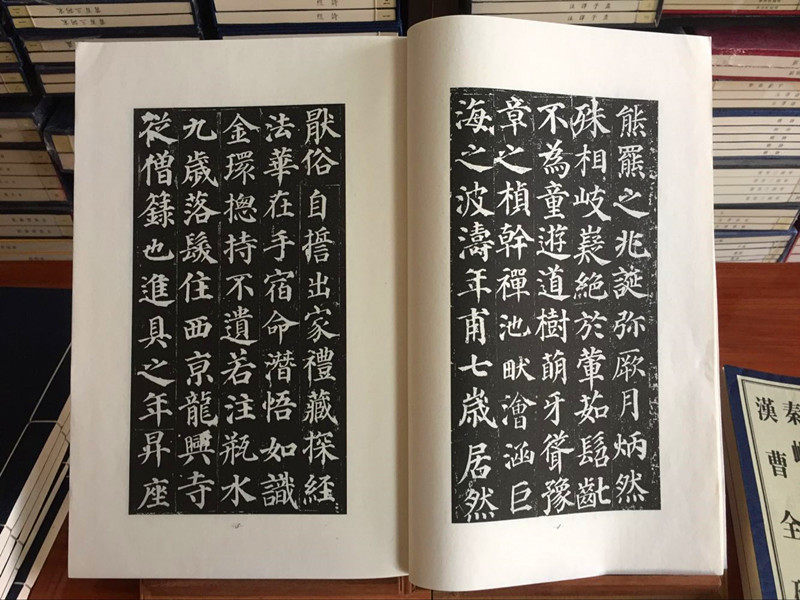 熊羆之兆誕弥厥月炳然
殊相岐嶷絕於葷茹髫齔
不為童遊道樹萌牙聳豫
章之楨幹禪池畎澮涵巨
海之波濤年甫七歲居然
猒俗自擔出家禮藏探經
法華在手宿命潛悟如識
金環揔持不遺若注瓶水
九歲落髮住西京龍興寺
從僧籙也進具之年昇座
漢曹全
秦